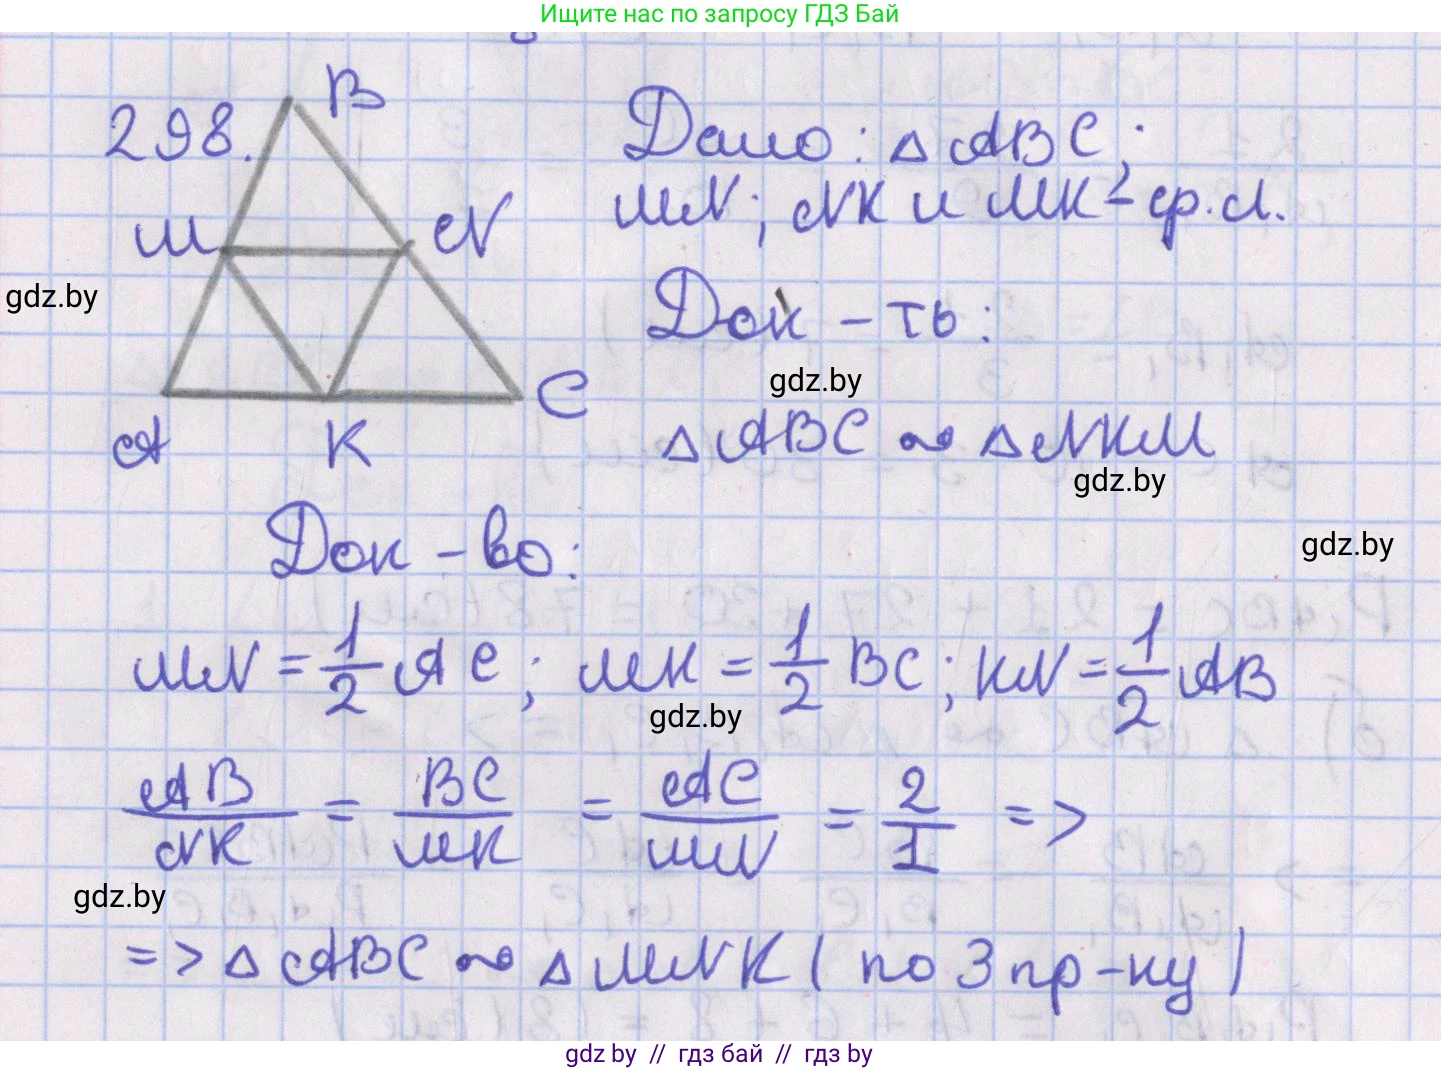 Ищите нас по запросу ГДЗ Бай
298.
B
M
N
A
K
C
Дано: △ABC;
MN; NK и MK - ср. л.
gdz.by
Док-ть:
gdz.by
△ABC ∾ △NKM
gdz.by
Док-во:
gdz.by
MN = 1/2 AC; MK = 1/2 BC; KN = 1/2 AB
gdz.by
AB/NK = BC/MK = AC/MN = 2/1 =>
gdz.by
=> △ABC ∾ △MNK (по 3 пр-ку)
gdz.by // гдз бай // гдз by